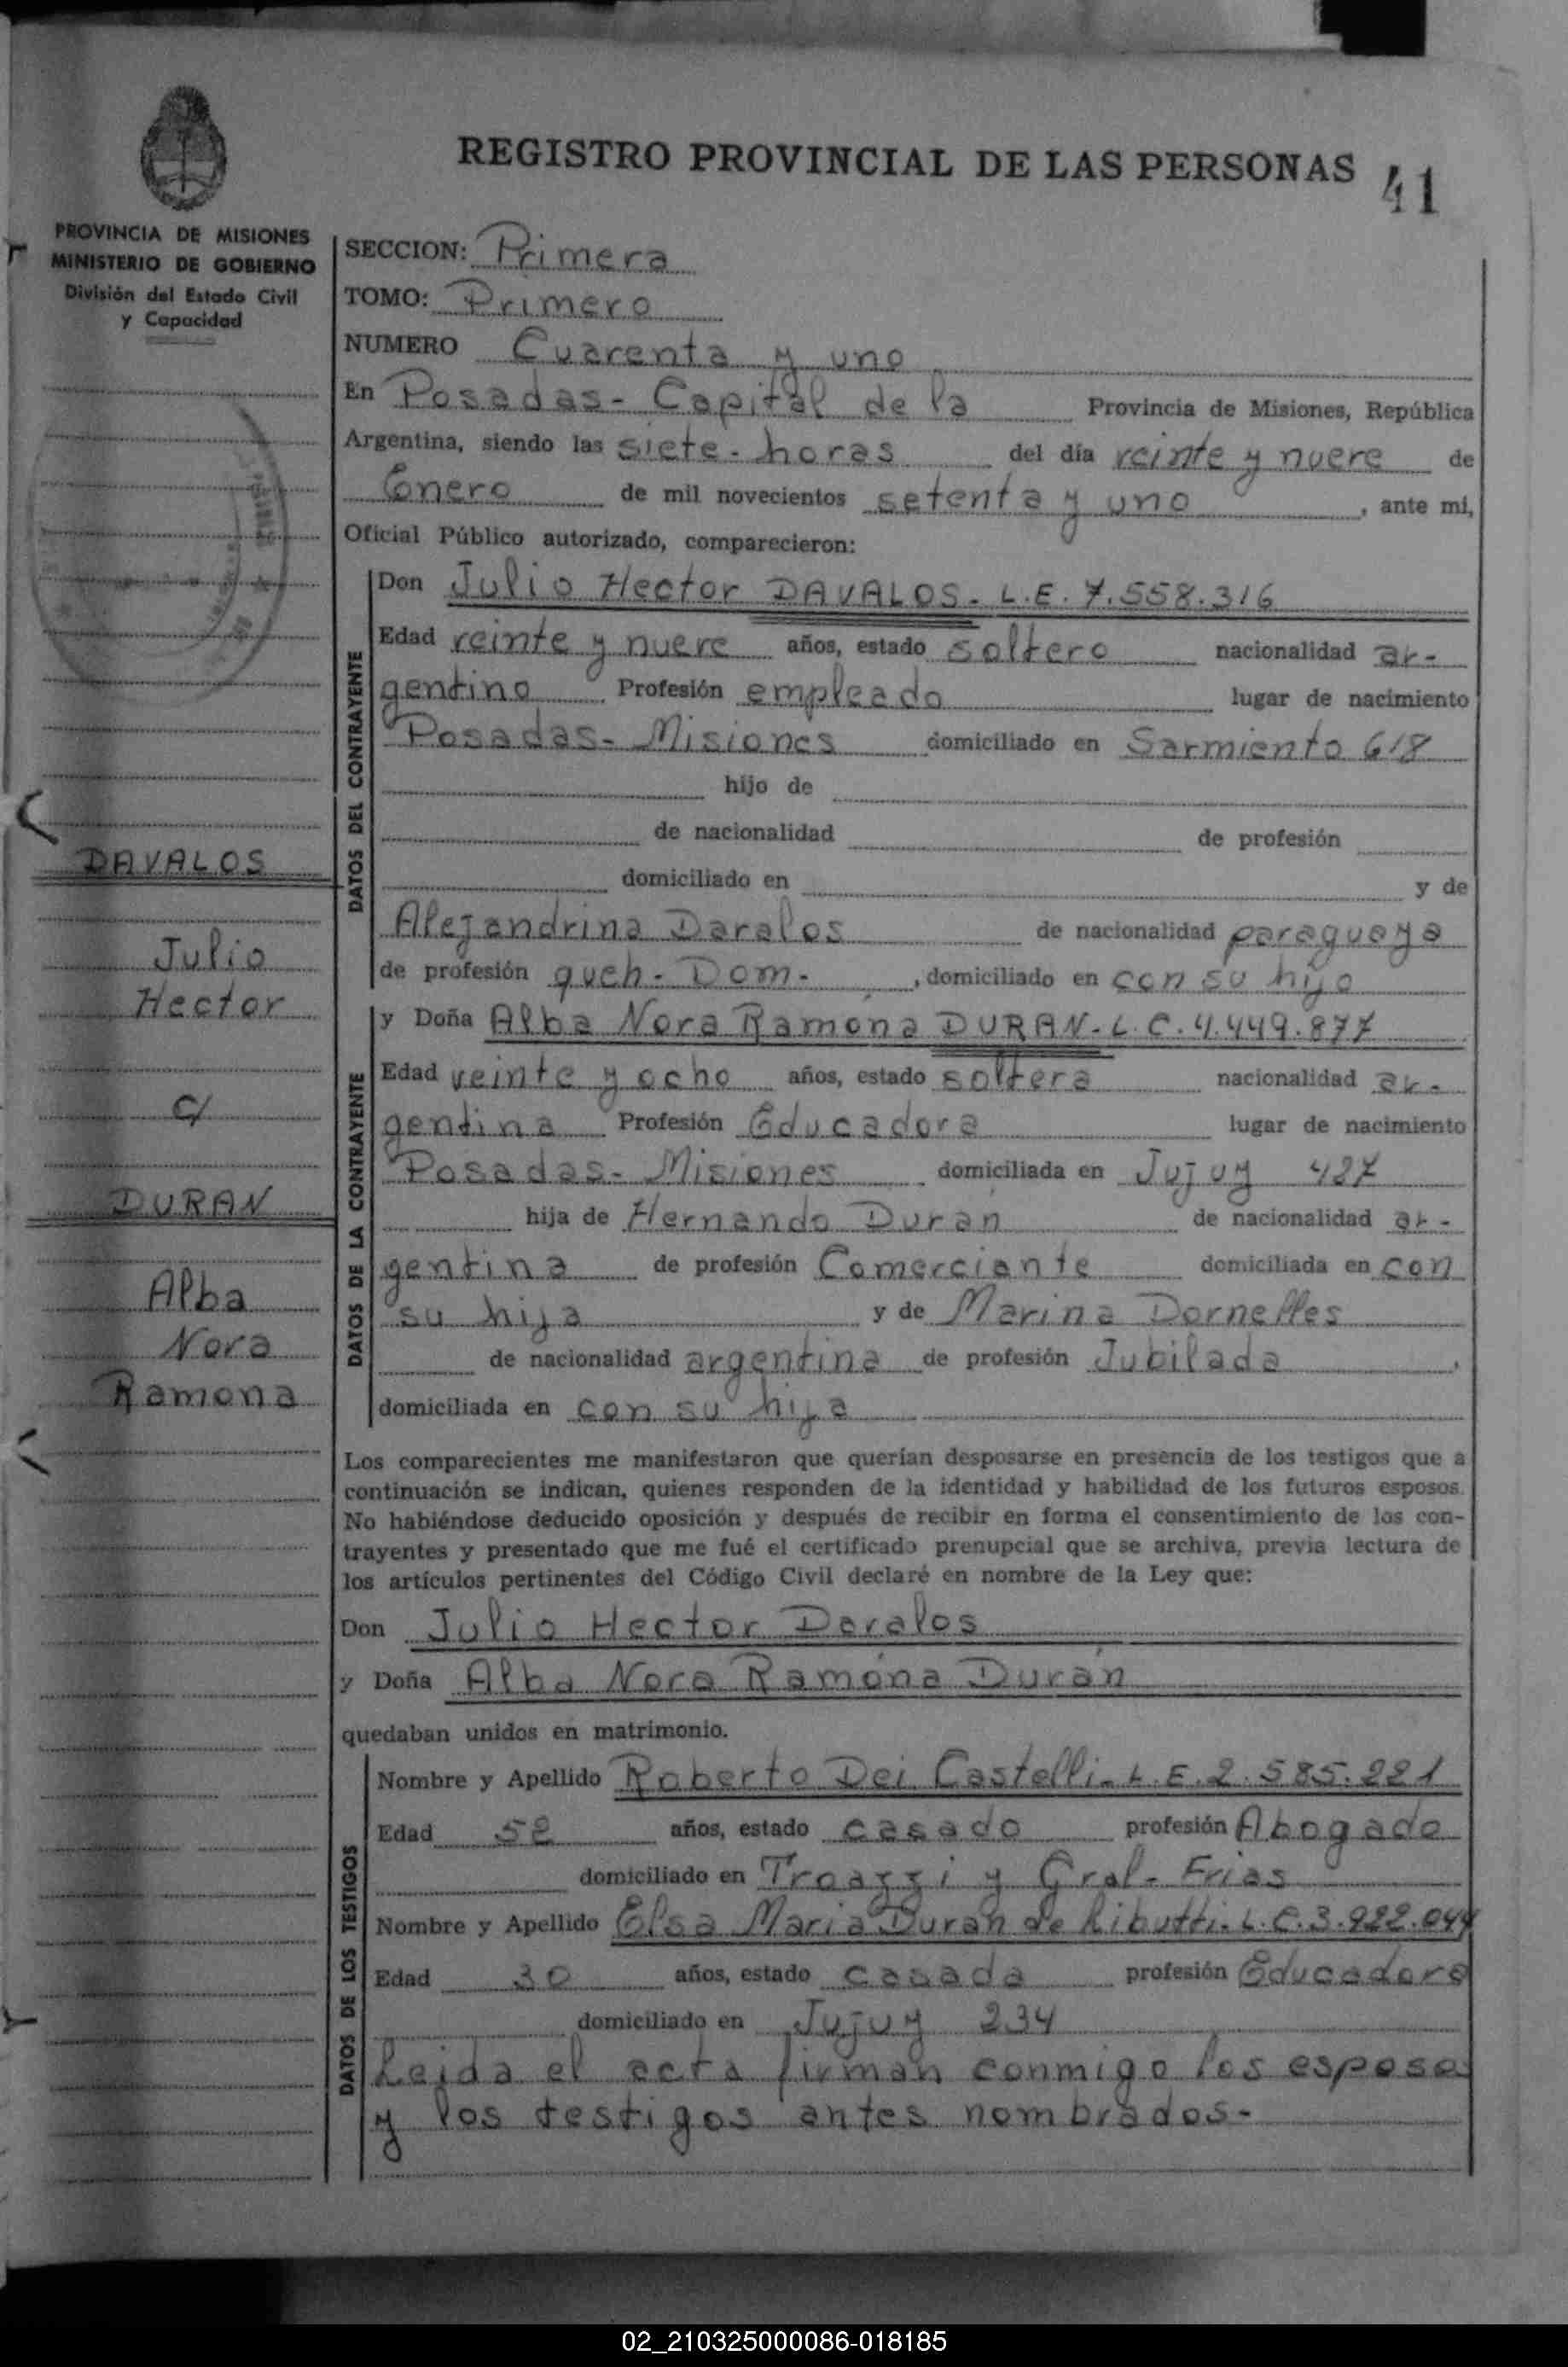 REGISTRO PROVINCIAL DE LAS PERSONAS 41
PROVINCIA DE MISIONES
MINISTERIO DE GOBIERNO
División del Estado Civil
y Capacidad
SECCION: Primera
TOMO: Primero
NUMERO Cuarenta y uno
En Posadas - Capital de la Provincia de Misiones, República
Argentina, siendo las siete - horas del día veinte y nueve de
Enero de mil novecientos setenta y uno, ante mi,
Oficial Público autorizado, comparecieron:
DATOS DEL CONTRAYENTE
Don Julio Hector DAVALOS - L.E. 7.558.316
Edad veinte y nueve años, estado soltero nacionalidad ar-
gentino Profesión empleado lugar de nacimiento
Posadas - Misiones domiciliado en Sarmiento 618
hijo de
de nacionalidad de profesión
domiciliado en y de
Alejandrina Davalos de nacionalidad paraguaya
de profesión queh - Dom -, domiciliado en con su hijo
DATOS DE LA CONTRAYENTE
y Doña Alba Nora Ramona DURAN - L.C. 4.449.877
Edad veinte y ocho años, estado soltera nacionalidad ar-
gentina Profesión Educadora lugar de nacimiento
Posadas - Misiones domiciliada en Jujuy 427
hija de Hernando Duran de nacionalidad ar-
gentina de profesión Comerciante domiciliada en con
su hija y de Marina Dornelles
de nacionalidad argentina de profesión Jubilada,
domiciliada en con su hija
Los comparecientes me manifestaron que querían desposarse en presencia de los testigos que a
continuación se indican, quienes responden de la identidad y habilidad de los futuros esposos.
No habiéndose deducido oposición y después de recibir en forma el consentimiento de los con-
trayentes y presentado que me fué el certificado prenupcial que se archiva, previa lectura de
los artículos pertinentes del Código Civil declaré en nombre de la Ley que:
Don Julio Hector Davalos
y Doña Alba Nora Ramona Duran
quedaban unidos en matrimonio.
DATOS DE LOS TESTIGOS
Nombre y Apellido Roberto Dei Castelli - L.E. 2.585.221
Edad 52 años, estado casado profesión Abogado
domiciliado en Troazzi y Gral - Frias
Nombre y Apellido Elsa Maria Duran de Ributti - L.C. 3.922.044
Edad 30 años, estado casada profesión Educadora
domiciliado en Jujuy 234
Leida el acta firman conmigo los esposos
y los testigos antes nombrados -
DAVALOS
Julio
Hector
c/
DURAN
Alba
Nora
Ramona
02_210325000086-018185